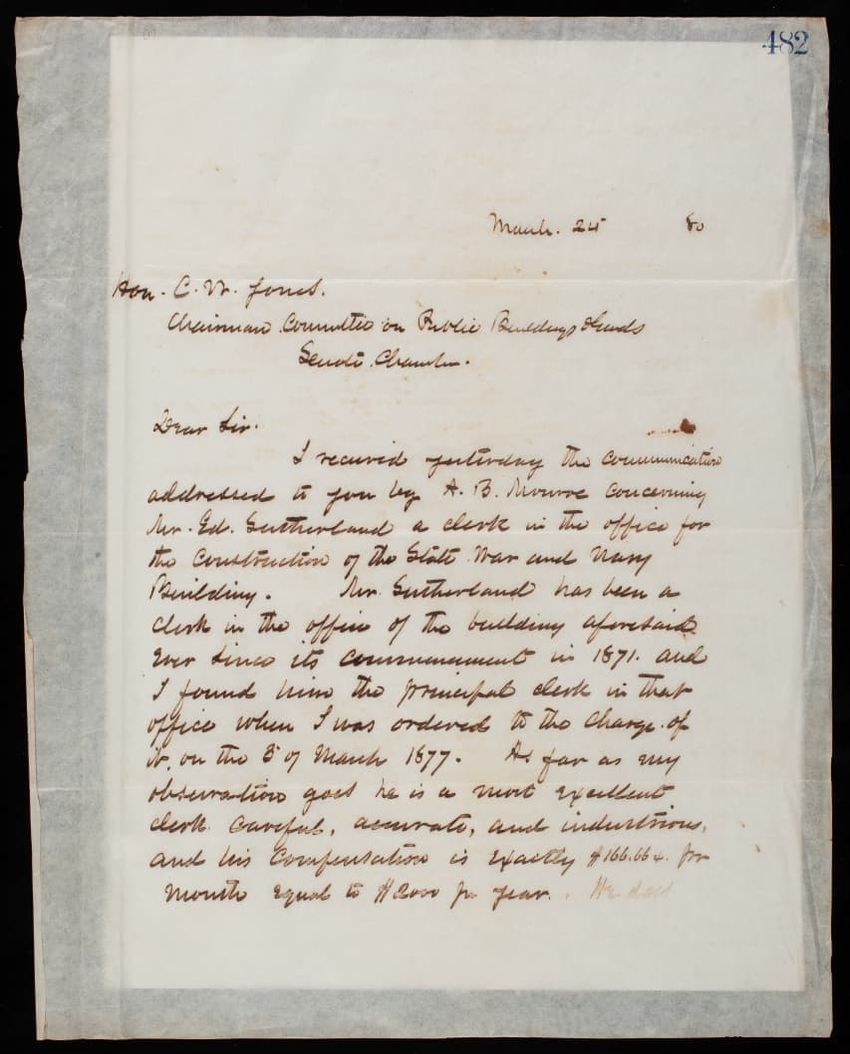 482
March. 24 80
Hon. C. W. Jones.
Chairman Committee on Public Buildings & Grounds
Senate Chamber.
Dear Sir.
I received yesterday the communication
addressed to you by A. B. Munroe concerning
Mr. Ed. Sutherland a clerk in the office for
the Construction of the State War and Navy
Building. Mr. Sutherland has been a
clerk in the office of the building aforesaid
ever since its commencement in 1871. and
I found him the principal clerk in that
office when I was ordered to the charge of
it, on the 3d of March 1877. As far as my
observation goes he is a most excellent
clerk careful, accurate, and industrious,
and his compensation is exactly $166.66 per
month equal to $2000 per year. He does